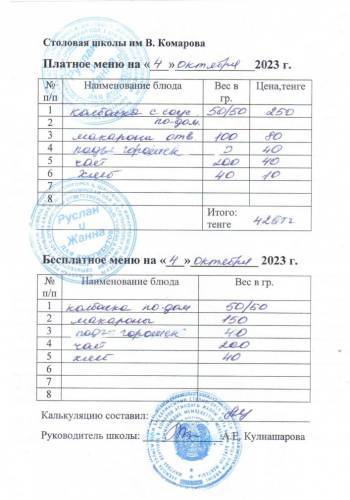 Столовая школы им В. Комарова
Платное меню на « 4 » октября 2023 г.
№ п/п Наименование блюда Вес в гр. Цена,тенге
1 колбаска с соус 50/50 250
2 по-дом.
3 макароны отв 100 80
4 горошек 40
5 чай 200 40
6 хлеб 40 10
7
8
Итого: тенге 425тг
Руслан и Жанна
Бесплатное меню на « 4 » октября 2023 г.
№ п/п Наименование блюда Вес в гр.
1 колбаска по-дом 50/50
2 макароны 150
3 горошек 40
4 чай 200
5 хлеб 40
6
7
8
Калькуляцию составил:
Руководитель школы: А.Е. Кулнашарова